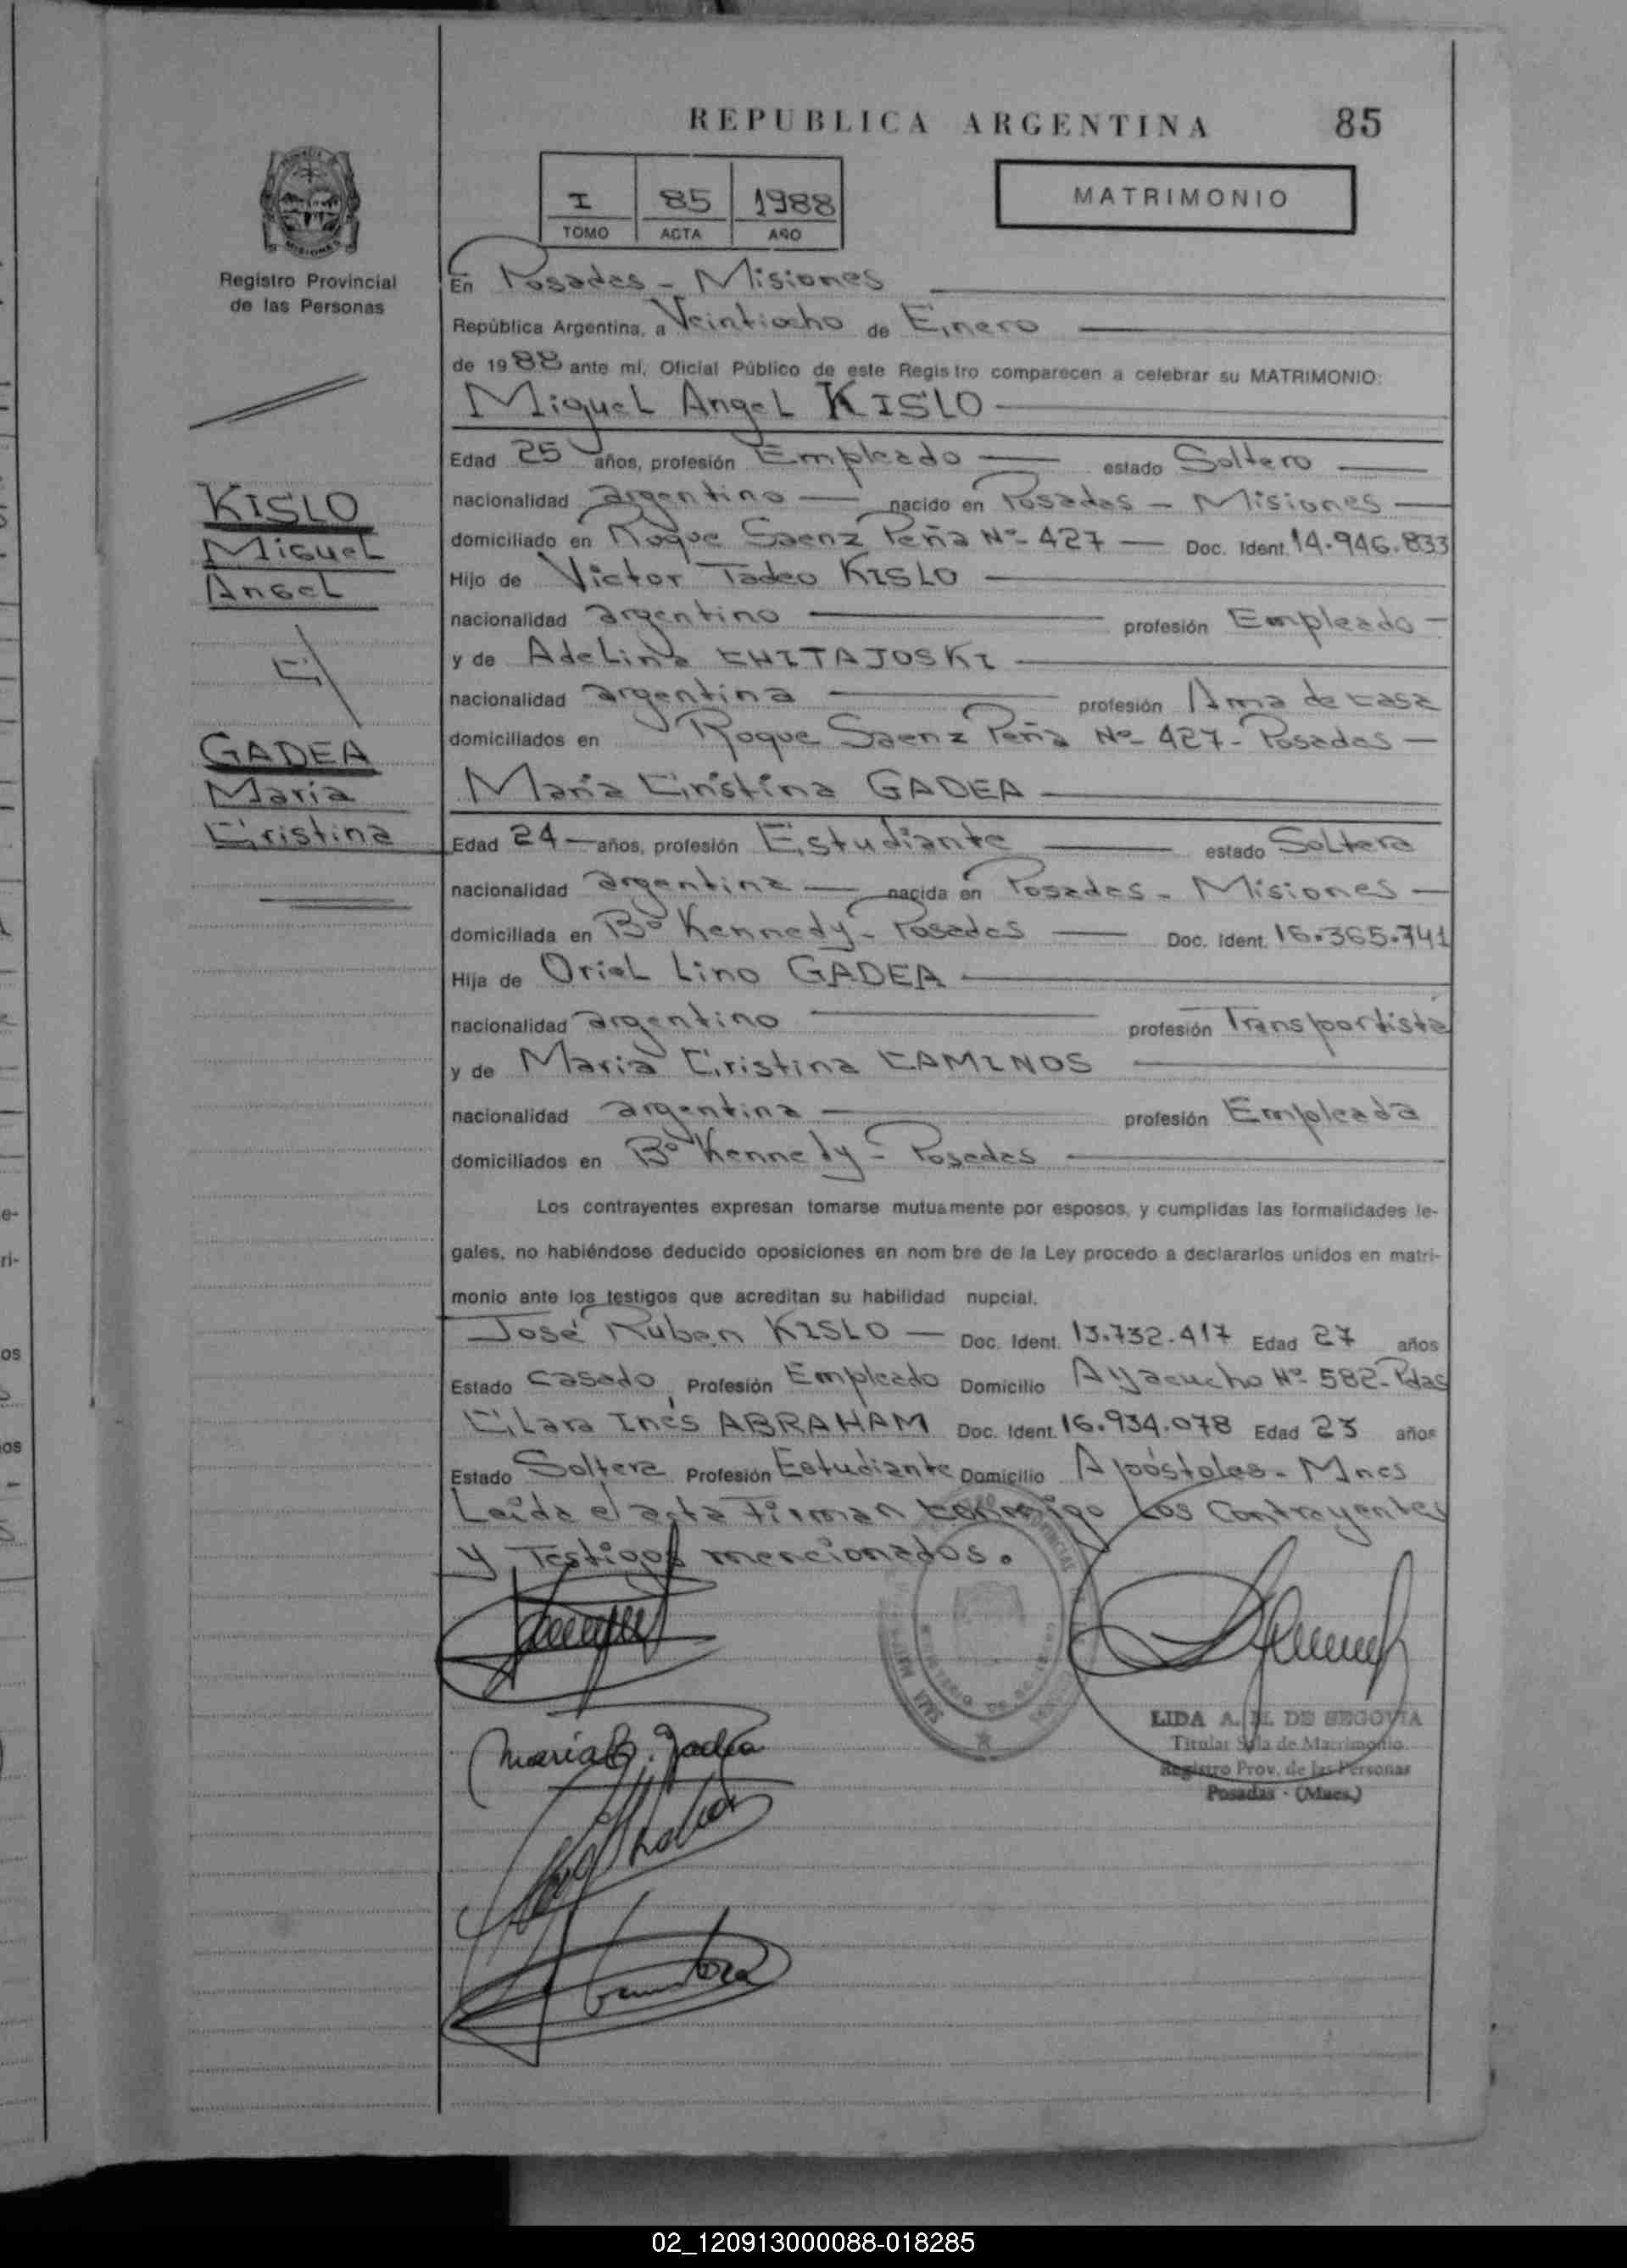 REPUBLICA ARGENTINA 85
I 85 1988
TOMO ACTA AÑO
MATRIMONIO
Registro Provincial
de las Personas
KISLO
Miguel
Angel
c/
GADEA
María
Cristina
En Posadas - Misiones
República Argentina, a Veintiocho de Enero
de 1988 ante mí, Oficial Público de este Registro comparecen a celebrar su MATRIMONIO:
Miguel Angel KISLO
Edad 25 años, profesión Empleado estado Soltero
nacionalidad argentino nacido en Posadas - Misiones
domiciliado en Roque Saenz Peña Nº 427 Doc. Ident. 14.946.833
Hijo de Victor Tadeo KISLO
nacionalidad argentino profesión Empleado
y de Adelina CHITAJOSKI
nacionalidad argentina profesión Ama de casa
domiciliados en Roque Saenz Peña Nº 427 - Posadas
María Cristina GADEA
Edad 24 años, profesión Estudiante estado Soltera
nacionalidad argentina nacida en Posadas - Misiones
domiciliada en Bº Kennedy - Posadas Doc. Ident. 16.365.741
Hija de Oriel Lino GADEA
nacionalidad argentino profesión Transportista
y de María Cristina CAMINOS
nacionalidad argentina profesión Empleada
domiciliados en Bº Kennedy - Posadas
Los contrayentes expresan tomarse mutuamente por esposos, y cumplidas las formalidades le-
gales, no habiéndose deducido oposiciones en nombre de la Ley procedo a declararlos unidos en matri-
monio ante los testigos que acreditan su habilidad nupcial.
José Ruben KISLO Doc. Ident. 13.732.417 Edad 27 años
Estado Casado, Profesión Empleado Domicilio Ayacucho Nº 582 - Pdas
Clara Inés ABRAHAM Doc. Ident. 16.934.078 Edad 23 años
Estado Soltera Profesión Estudiante Domicilio Apóstoles - Mnes
Leida el acta Firman conmigo Los Contrayentes
y Testigos mencionados.
María C. Gadea
LIDA A. M. DE SEGOVIA
Titular Sala de Matrimonio
Registro Prov. de las Personas
Posadas - (Mnes.)
02_120913000088-018285